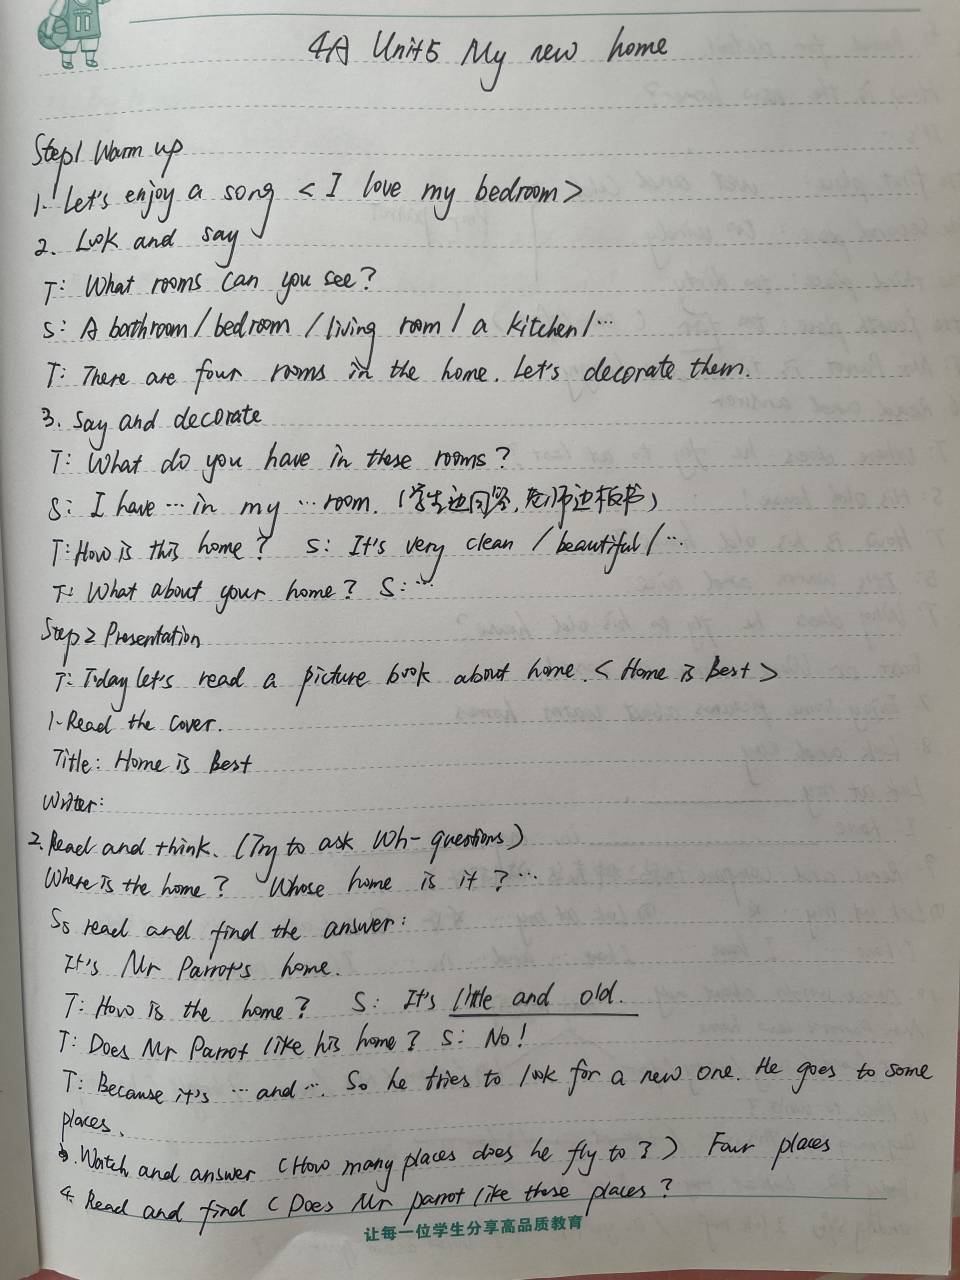 4A Unit5 My new home
Step1 Warm up
1. Let's enjoy a song < I love my bedroom >
2. Look and say
T: What rooms can you see?
S: A bathroom / bedroom / living room / a kitchen / ...
T: There are four rooms in the home. Let's decorate them.
3. Say and decorate
T: What do you have in these rooms?
S: I have ... in my ... room. (学生边回答,老师边板书)
T: How is this home? S: It's very clean / beautiful / ...
T: What about your home? S: ...
Step 2 Presentation
T: Today let's read a picture book about home. < Home is Best >
1. Read the cover.
Title: Home is Best
Writer:
2. Read and think. (Try to ask Wh- questions)
Where is the home? Whose home is it? ...
So read and find the answer:
It's Mr Parrot's home.
T: How is the home? S: It's little and old.
T: Does Mr Parrot like his home? S: No!
T: Because it's ... and ... So he tries to look for a new one. He goes to some
places.
3. Watch and answer (How many places does he fly to?) Four places
4. Read and find (Does Mr parrot like these places?
让每一位学生分享高品质教育